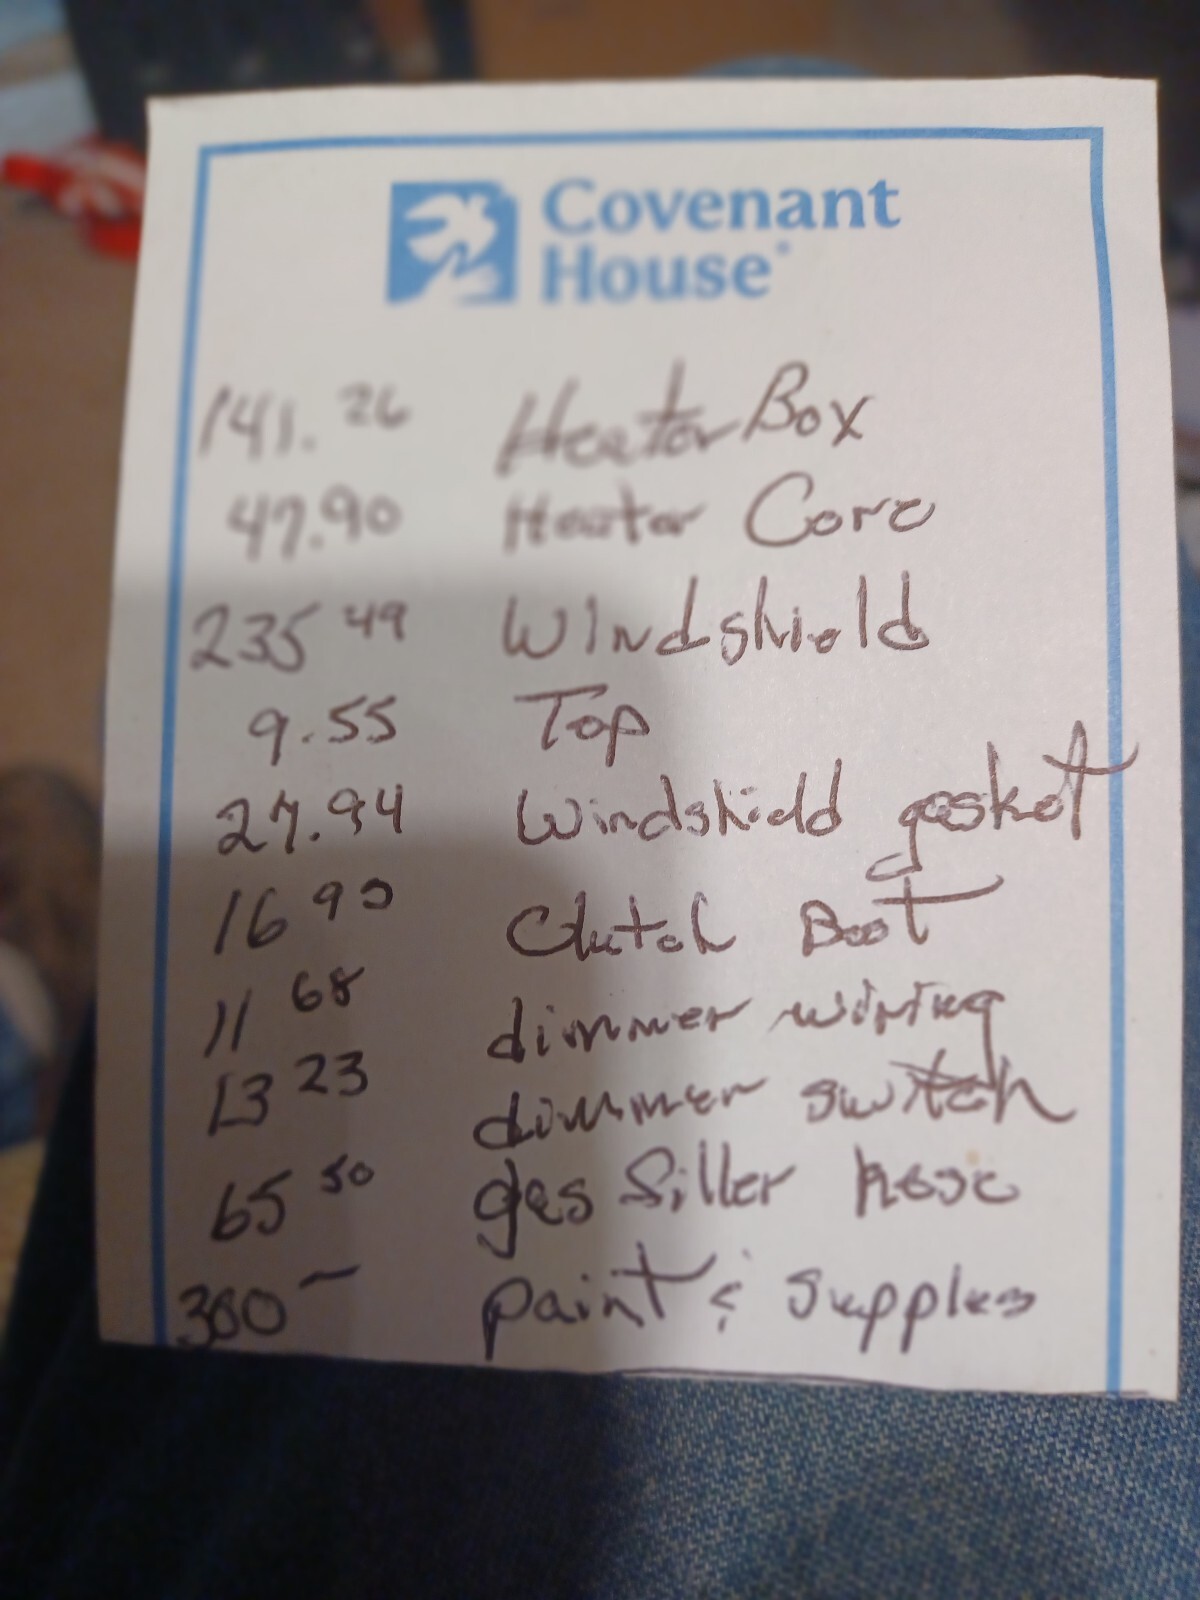 Covenant
House®
141.26 Heater Box
47.90 Heater Core
235 49 Windshield
9.55 Top
27.94 Windshield gasket
16 90 Clutch Boot
11 68 dimmer wiring
13 23 dimmer switch
65 50 gas filler hose
300 — paint & supplies